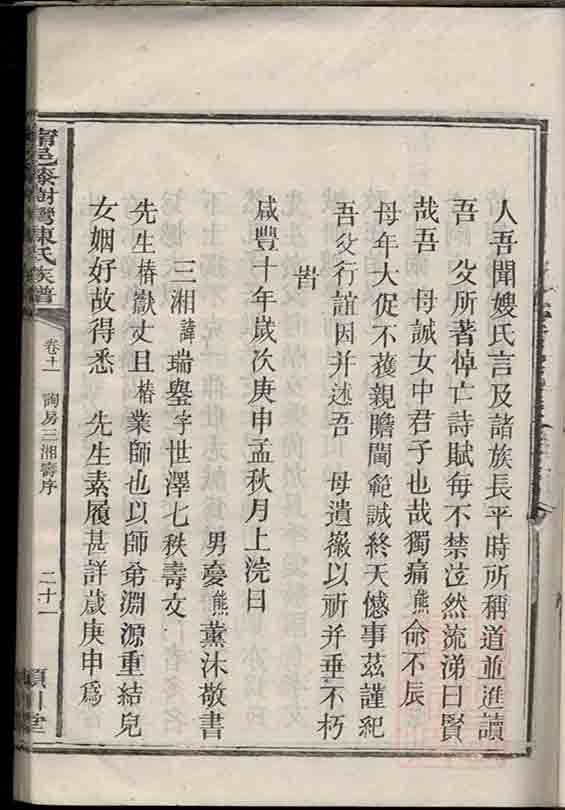 人吾聞嫂氏言及諸族長平時所稱道並進讀
吾 父所著悼亡詩賦每不禁泣然流涕曰賢
哉吾 母誠女中君子也哉獨痛熊命不辰
母年大促不獲親瞻閫範誠終天憾事茲謹紀
吾父行誼因并述吾 母遺徽以祈并垂不朽
旹
咸豐十年歲次庚申孟秋月上浣日
男夔熊薰沐敬書
三湘諱瑞鋆字世澤七秩壽文
先生椿嶽丈且楷業師也以師弟淵源重結兒
女姻好故得悉 先生素履甚詳歲庚申爲
甯邑 樹灣陳氏族譜
卷十一
詢房三湘壽序
二十一
潁川堂